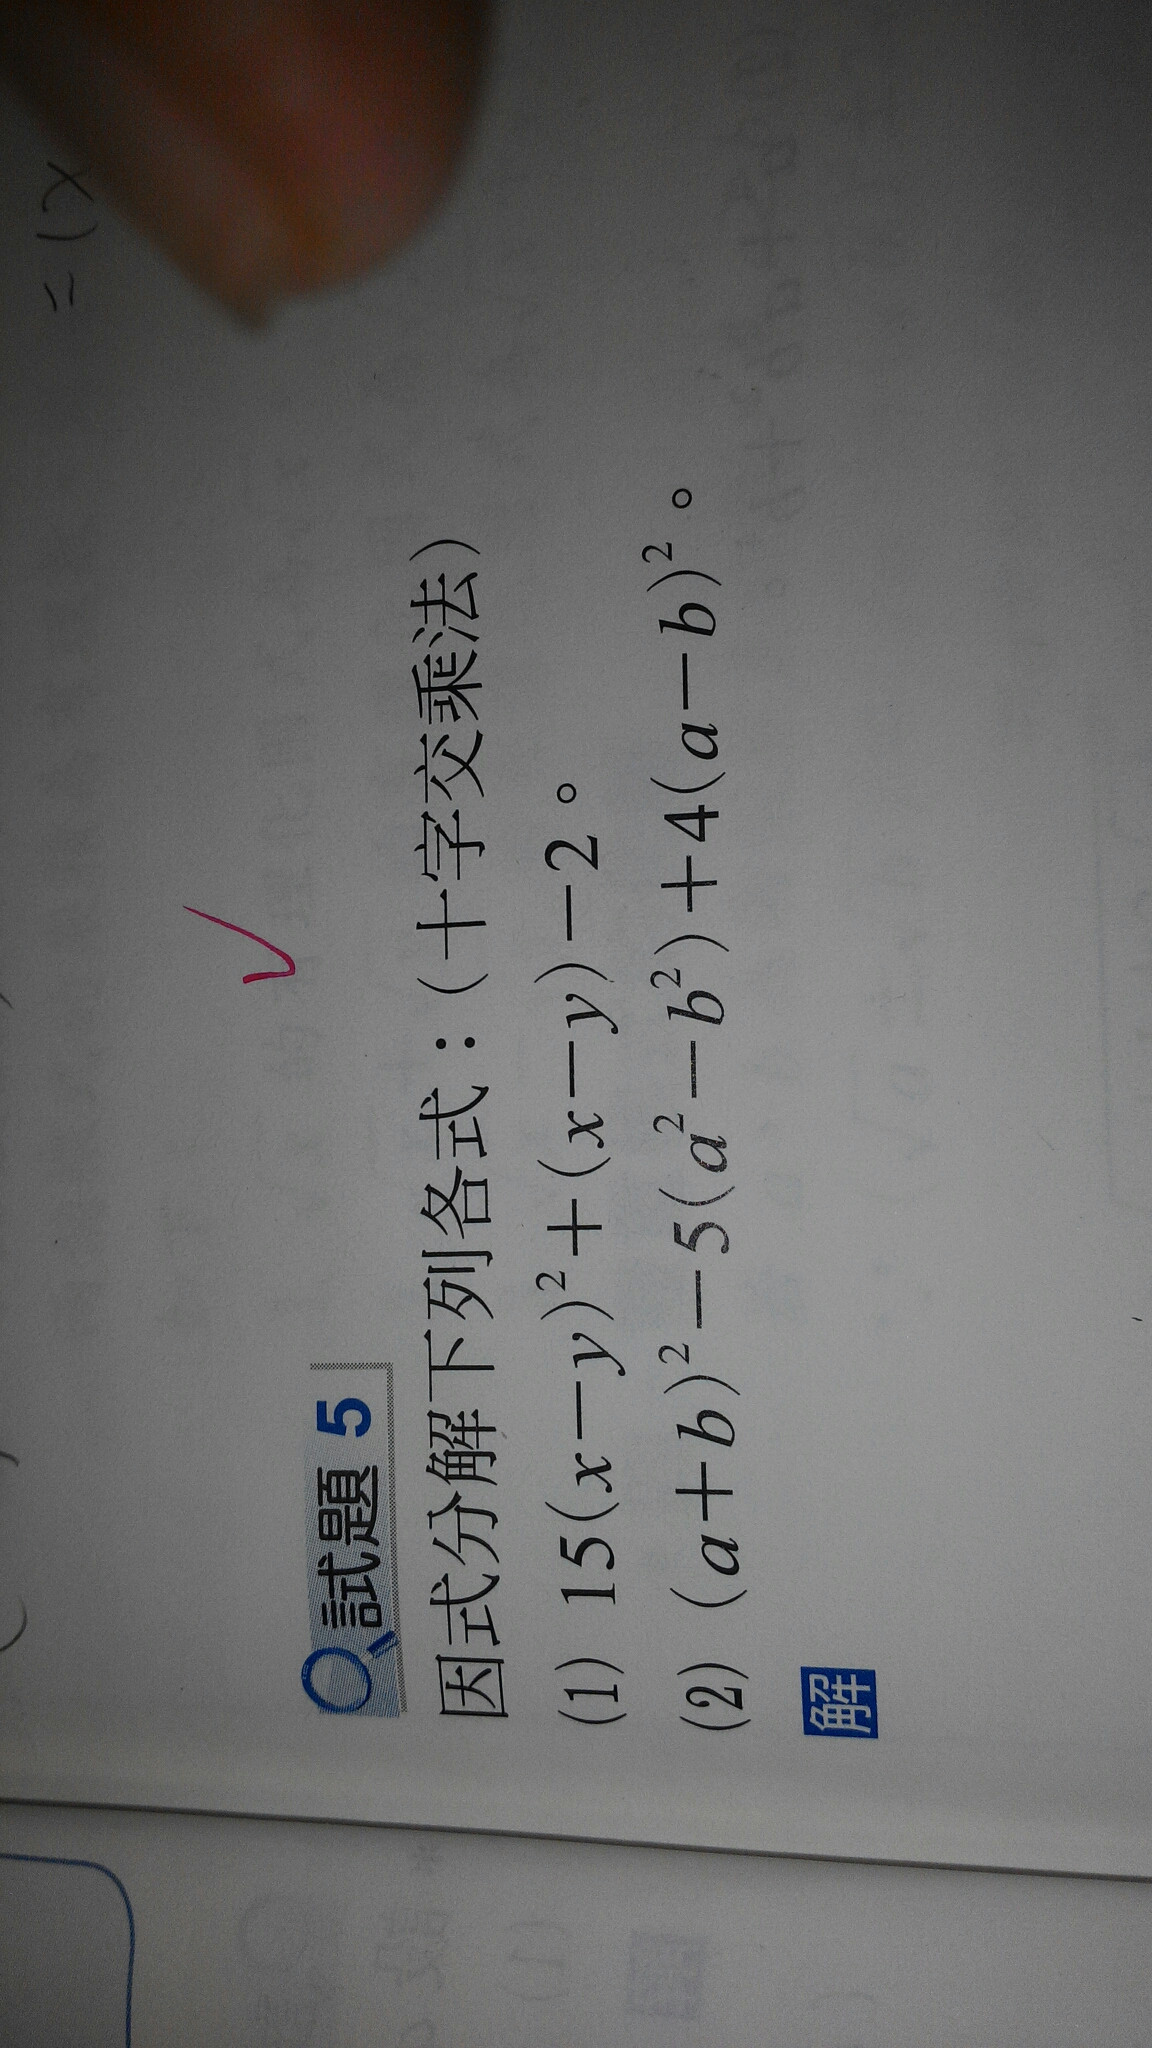 = (x
試題 5
因式分解下列各式：(十字交乘法)
(1) 15(x－y)²＋(x－y)－2。
(2) (a＋b)²－5(a²－b²)＋4(a－b)²。
解